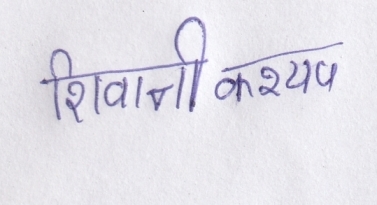 शिवानी कश्यप